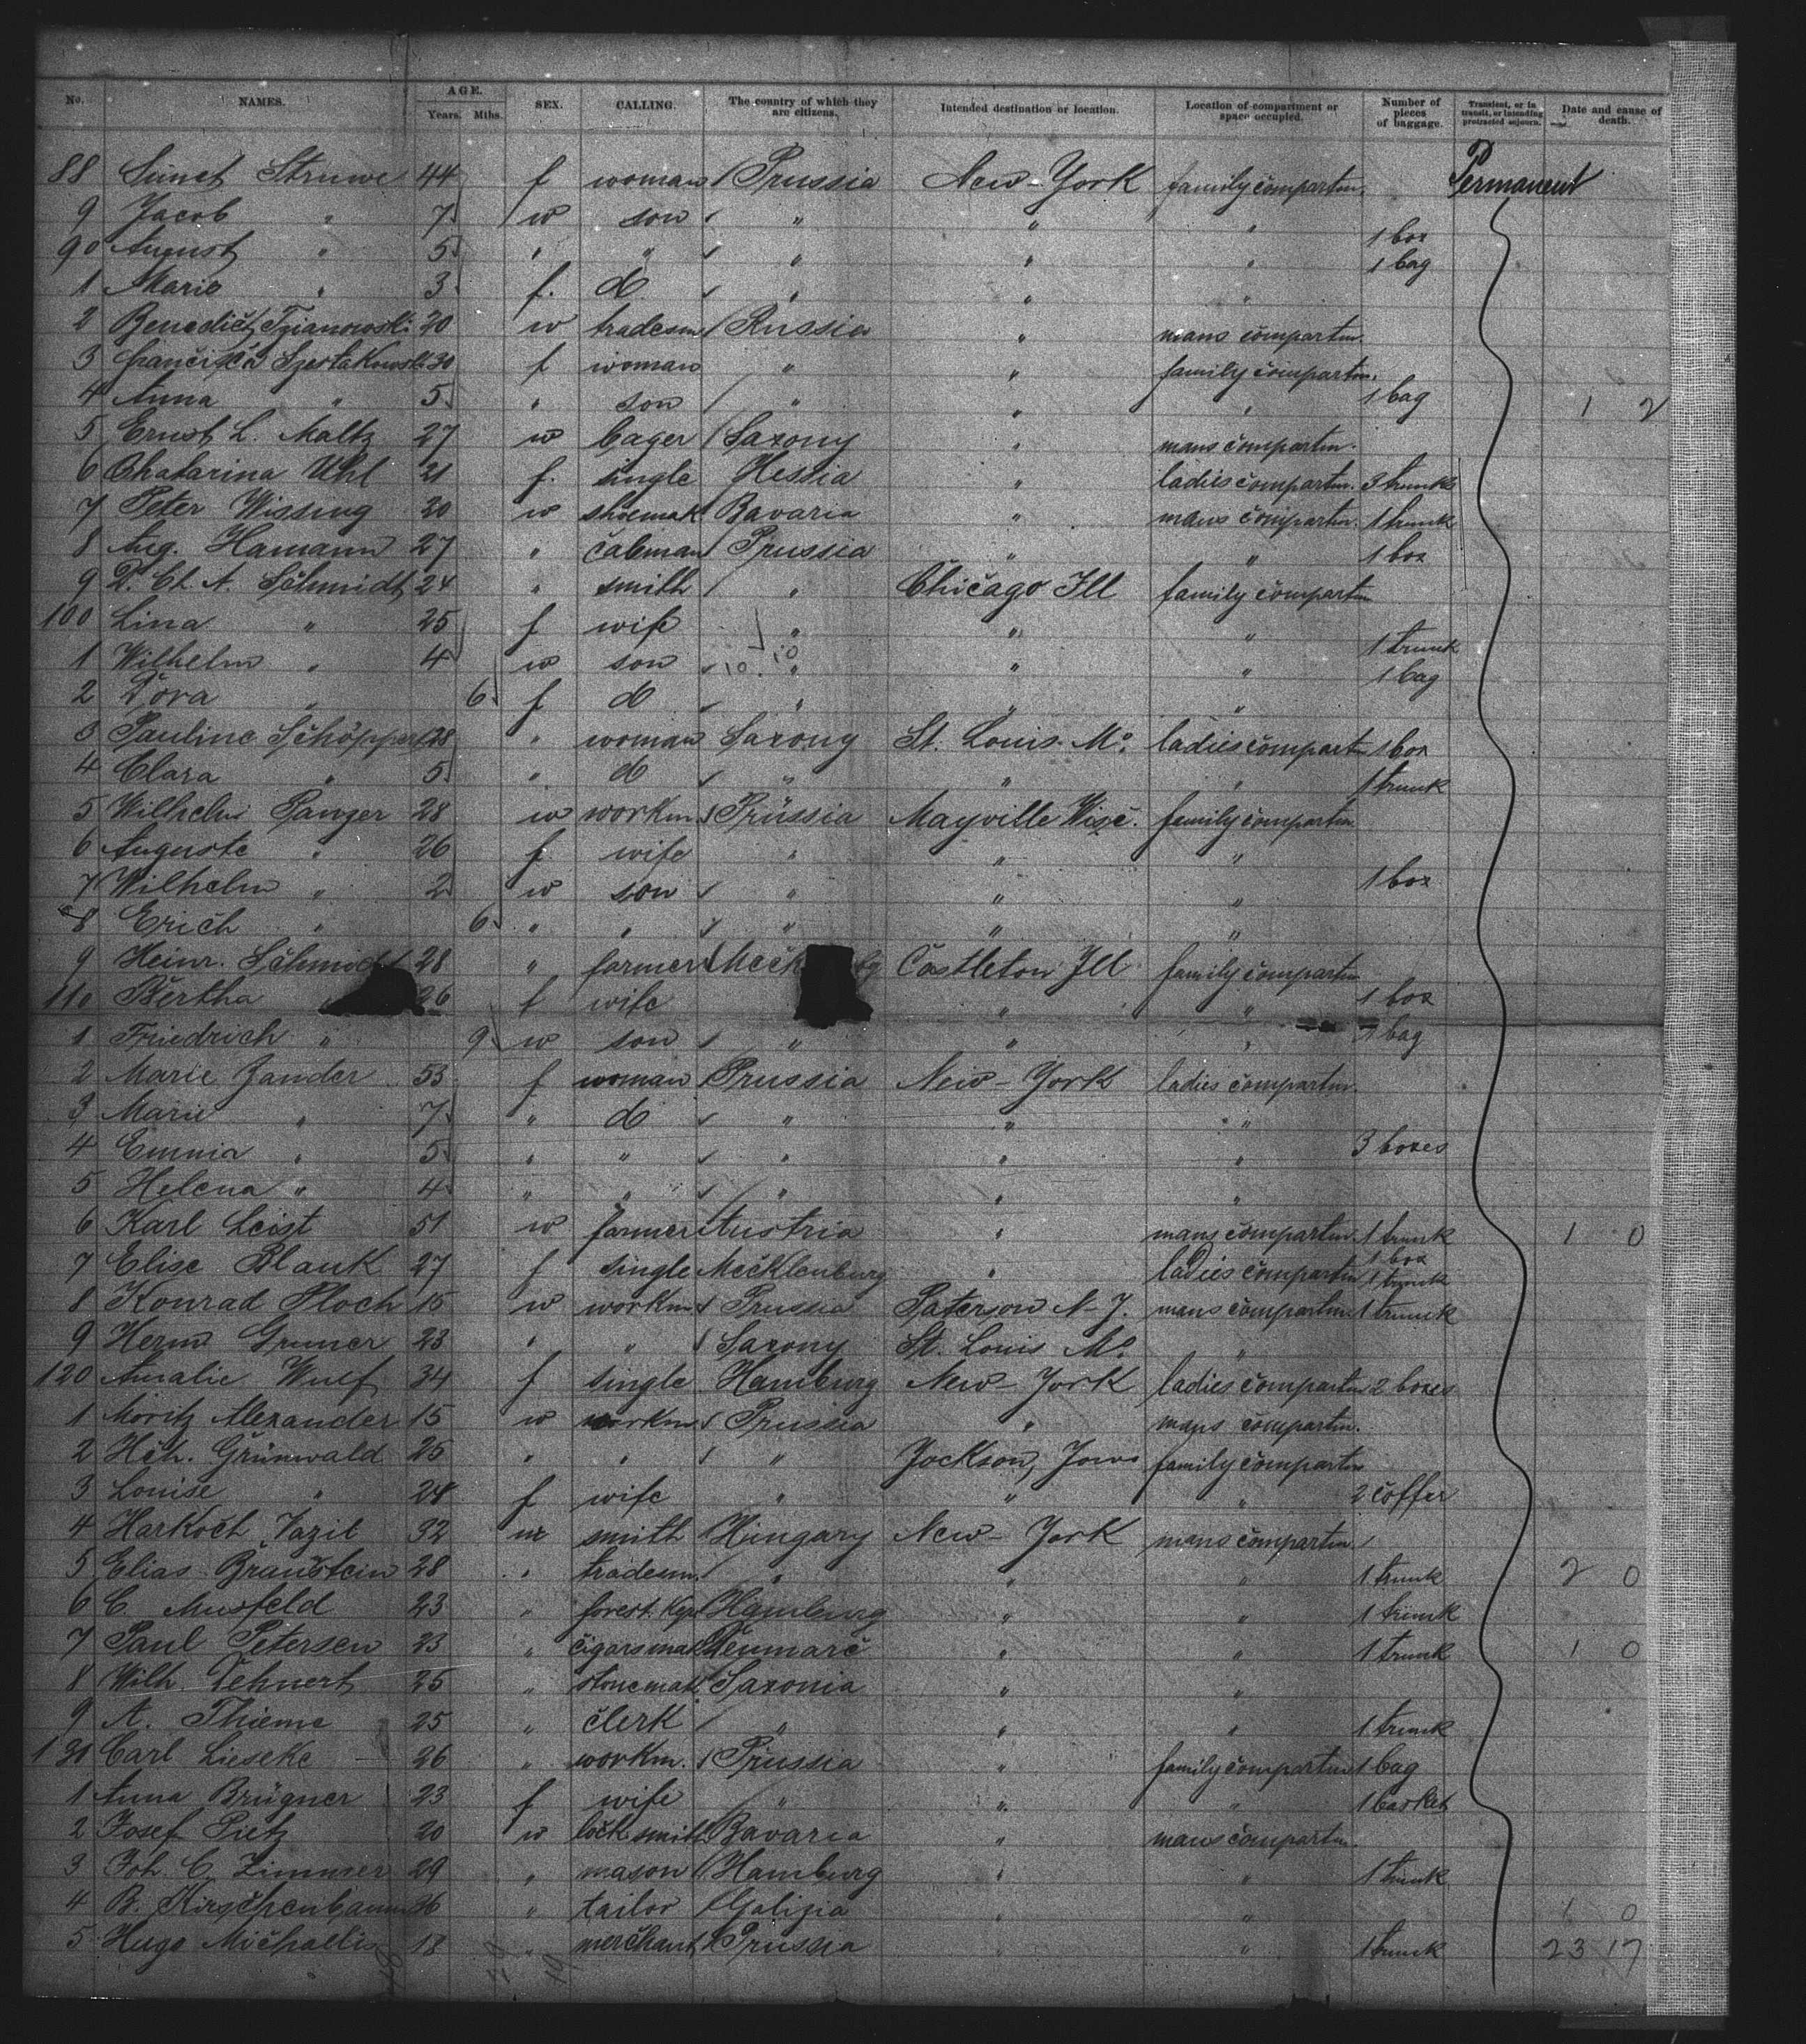 No. NAMES. AGE. Years. Mths. SEX. CALLING. The country of which they are citizens. Intended destination or location. Location of compartment or space occupied. Number of pieces of baggage. Transient, or in transit, or intending protracted sojourn. Date and cause of death.
88 Struwe 44 f woman Prussia New-York family compartm. Permanent
9 Jacob " 7 m son " " "
1 box
90 August " 5 " " " " "
1 bag
1 Marie " 3 f. d " " "
2 Benedict 20 m tradesm Russia " mans compartm.
3 30 f woman " " family compartm.
4 Anna " 5 " son " " " 1 bag 1 2
5 Ernst L. Maltz 27 m Saxony " mans compartm.
6 Chatarina Uhl 21 f. single Hessia " ladies compartm. 3 trunks
7 Peter Wissing 20 m shoemak Bavaria " mans compartm. 1 trunk
8 Aug. Hamann 27 " cabman Prussia " " 1 box
9 D. Ch. A. Schmidt 24 " smith " Chicago Ill family compartm
100 Lina " 25 f wife " " "
1 trunk
1 Wilhelm " 4 m son 10 10 " " "
1 bag
2 Dora " 6 f d " " "
3 Pauline 28 " woman Saxony St. Louis Mo. ladies compartm 1 box
4 Clara " 5 " d " " " 1 trunk
5 Wilhelm Panzer 28 m workm Prussia Mayville Wisc. family compartm
6 Auguste " 26 f wife " " "
7 Wilhelm " 2 m son " " " 1 box
8 Erich " 6 " " " " "
9 Heinr. Schmidt 28 " farmer Castleton Ill family compartm
110 Bertha 26 f wife " " 1 box
1 Friedrich " 9 m son " " " bag
2 Marie Zander 53 f woman Prussia New-York ladies compartm.
3 Marie " 7 " d " " "
4 Emma " 5 " " " " " 3 boxes
5 Helena " 4 " " " " "
6 Karl Leist 51 m farmer Austria " mans compartm. 1 trunk 1 0
7 Elise Blank 27 f single Mecklenburg " ladies compartm 1 box
1 trunk
8 Konrad Ploch 15 m workm Prussia Paterson N-J. mans compartm 1 trunk
9 Herm Gruner 23 " " Saxony St. Louis Mo. "
120 Amalie Wulf 34 f single Hamburg New-York ladies compartm 2 boxes
1 Moritz Alexander 15 m workm Prussia " mans compartm.
2 Hch. Grünwald 25 " " " Jackson, Jowa family compartm
3 Louise " 24 f wife " " " 2 coffer
4 Harkoch Vazil 32 m smith Hungary New-York mans compartm
5 Elias Braustein 28 " tradesm. " " " 1 trunk 2 0
6 C. Musfeld 23 " forest. Kep Hamburg " " 1 trunk
7 Paul Petersen 23 " cigarsmak Denmarc " " 1 trunk 1 0
8 Wilh. Dehnert 25 " stonemak Saxonia " "
9 A. Thieme 25 " clerk " " " 1 trunk
130 Carl Lieseke 26 " workm. Prussia " family compartm 1 bag
1 Anna Brügner 23 f wife " " " 1 basket
2 Josef Pietz 20 m lock smith Bavaria " mans compartm.
3 Joh. C. Zimmer 29 " mason Hamburg " " 1 trunk
4 B. Kirschenbaum 26 " tailor Galizia " " 1 0
5 Hugo Michaelis 18 " merchant Prussia " " 1 trunk 23 17